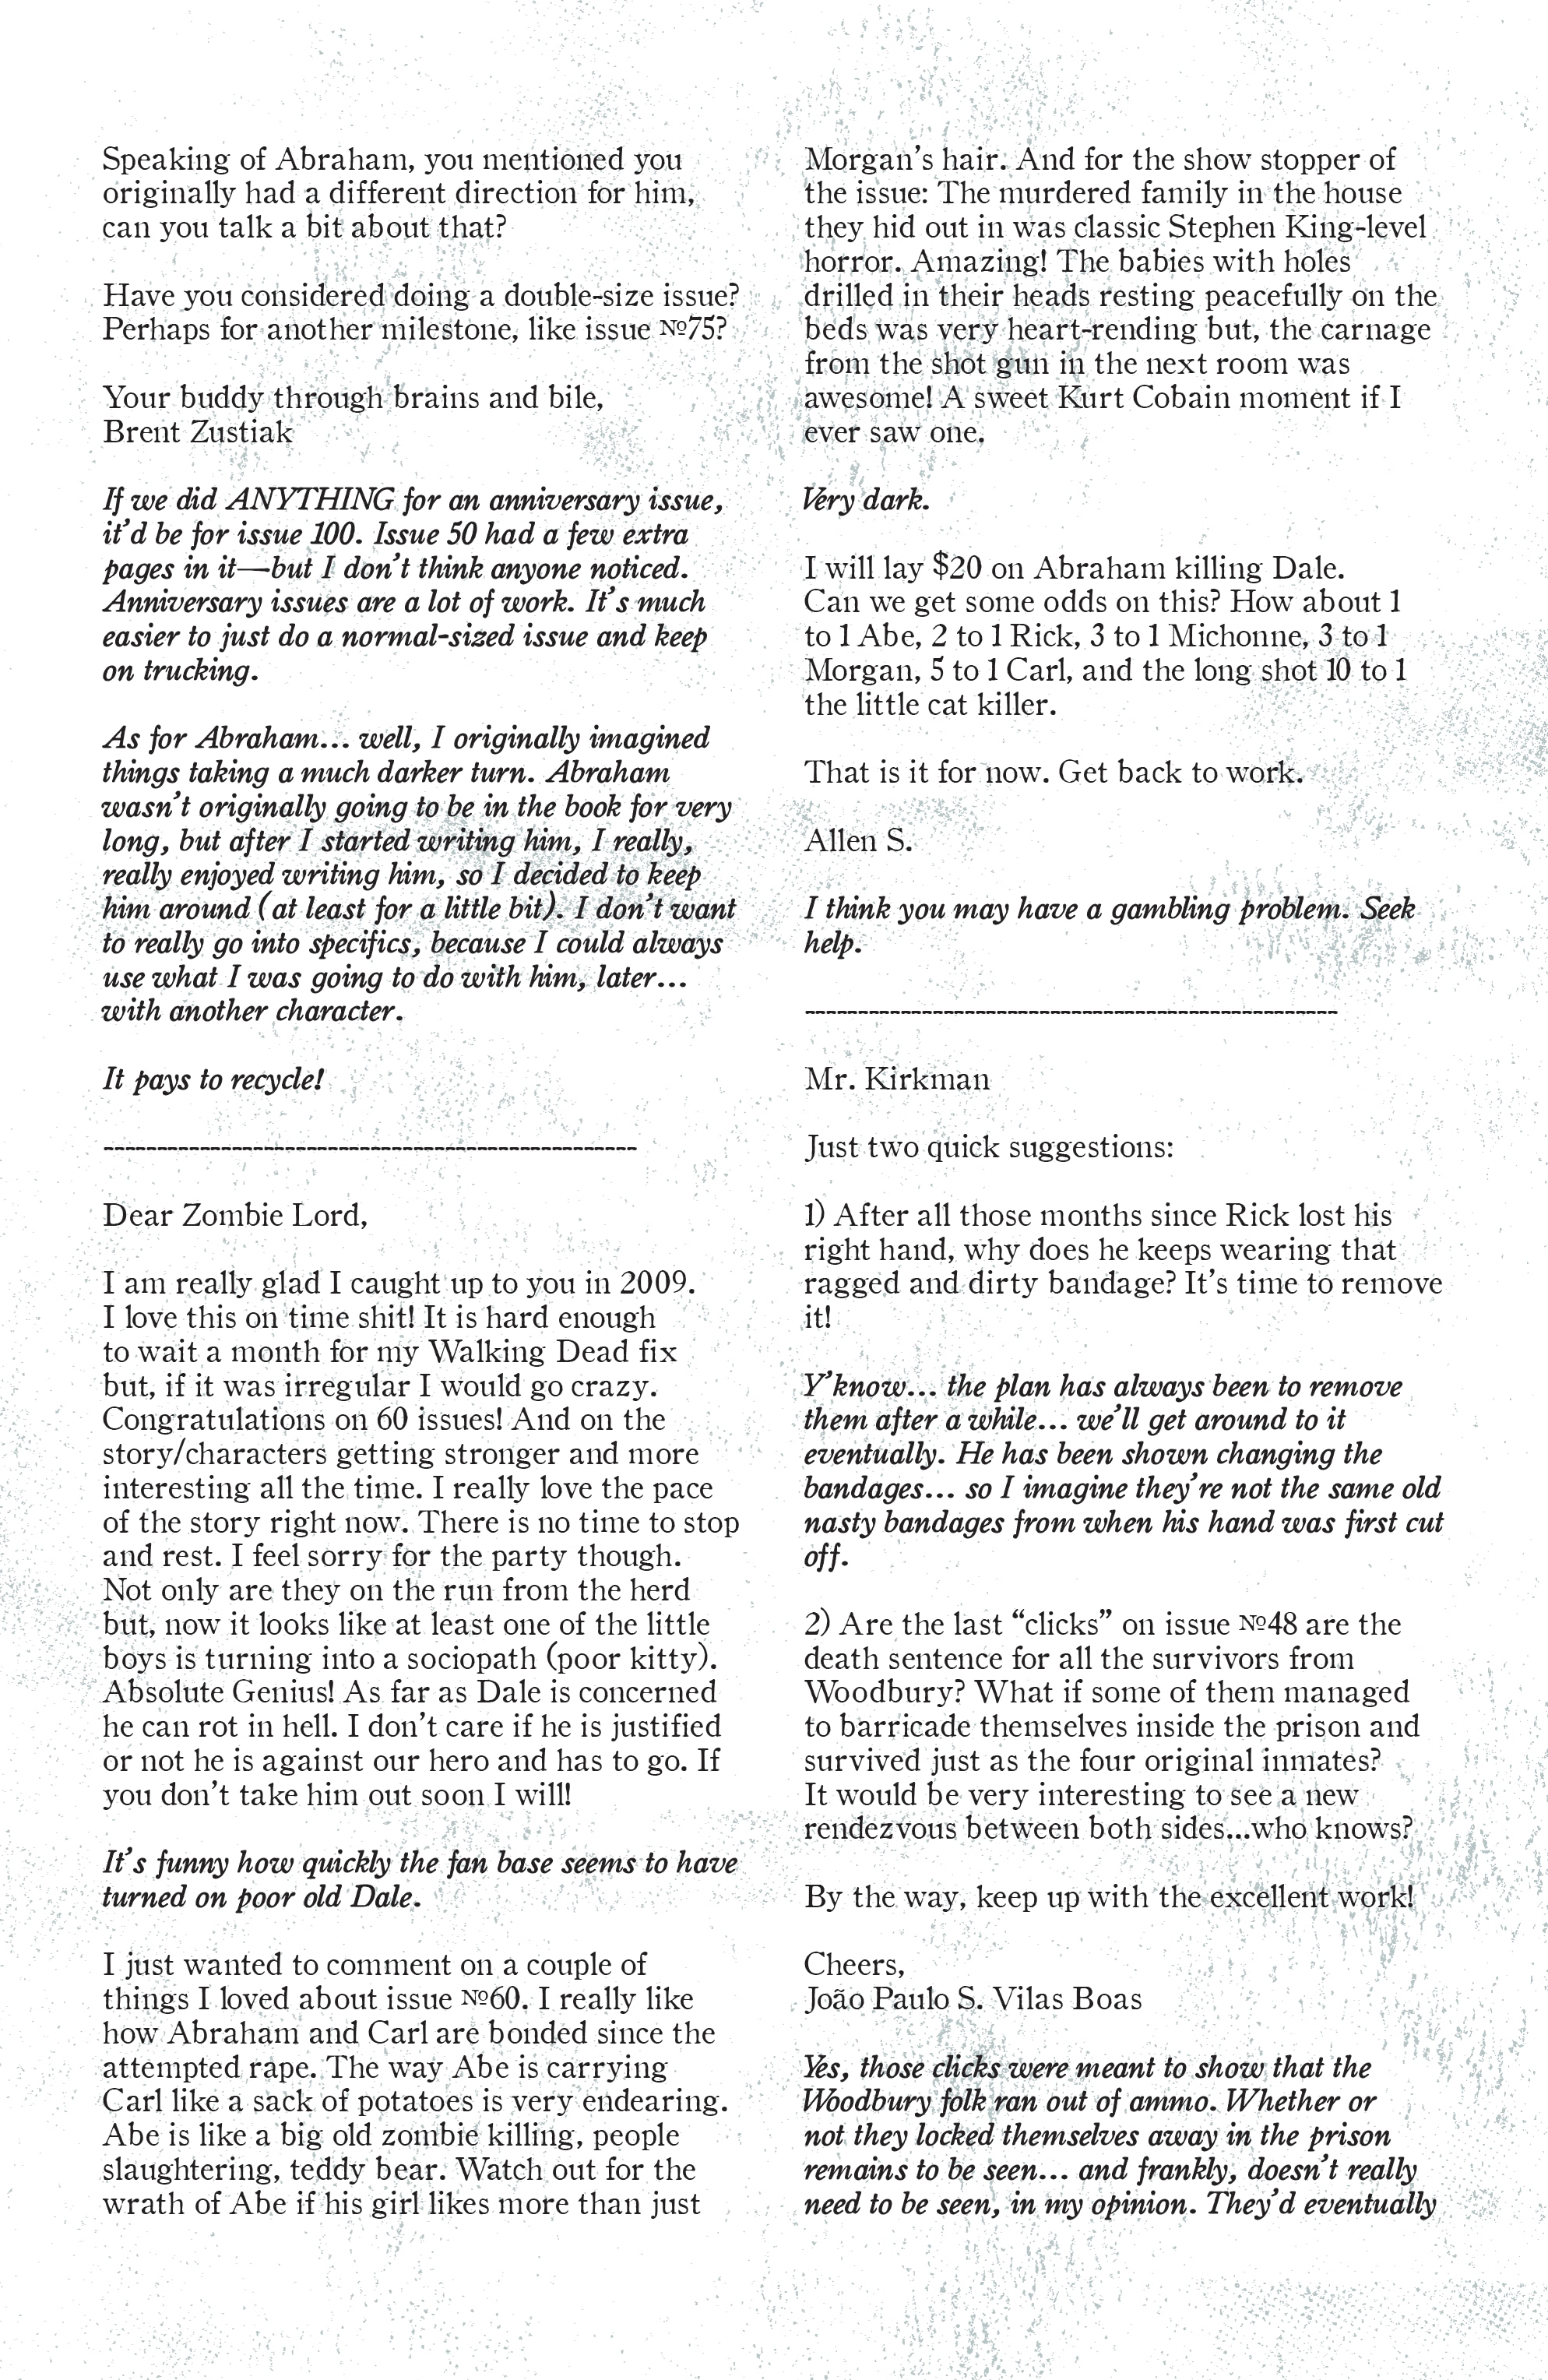 Speaking of Abraham, you mentioned you
originally had a different direction for him,
can you talk a bit about that?
Have you considered doing a double-size issue?
Perhaps for another milestone, like issue №75?
Your buddy through brains and bile,
Brent Zustiak
If we did ANYTHING for an anniversary issue,
it’d be for issue 100. Issue 50 had a few extra
pages in it—but I don’t think anyone noticed.
Anniversary issues are a lot of work. It’s much
easier to just do a normal-sized issue and keep
on trucking.
As for Abraham... well, I originally imagined
things taking a much darker turn. Abraham
wasn’t originally going to be in the book for very
long, but after I started writing him, I really,
really enjoyed writing him, so I decided to keep
him around (at least for a little bit). I don’t want
to really go into specifics, because I could always
use what I was going to do with him, later...
with another character.
It pays to recycle!
--------------------------------------------------
Dear Zombie Lord,
I am really glad I caught up to you in 2009.
I love this on time shit! It is hard enough
to wait a month for my Walking Dead fix
but, if it was irregular I would go crazy.
Congratulations on 60 issues! And on the
story/characters getting stronger and more
interesting all the time. I really love the pace
of the story right now. There is no time to stop
and rest. I feel sorry for the party though.
Not only are they on the run from the herd
but, now it looks like at least one of the little
boys is turning into a sociopath (poor kitty).
Absolute Genius! As far as Dale is concerned
he can rot in hell. I don’t care if he is justified
or not he is against our hero and has to go. If
you don’t take him out soon I will!
It’s funny how quickly the fan base seems to have
turned on poor old Dale.
I just wanted to comment on a couple of
things I loved about issue №60. I really like
how Abraham and Carl are bonded since the
attempted rape. The way Abe is carrying
Carl like a sack of potatoes is very endearing.
Abe is like a big old zombie killing, people
slaughtering, teddy bear. Watch out for the
wrath of Abe if his girl likes more than just
Morgan’s hair. And for the show stopper of
the issue: The murdered family in the house
they hid out in was classic Stephen King-level
horror. Amazing! The babies with holes
drilled in their heads resting peacefully on the
beds was very heart-rending but, the carnage
from the shot gun in the next room was
awesome! A sweet Kurt Cobain moment if I
ever saw one.
Very dark.
I will lay $20 on Abraham killing Dale.
Can we get some odds on this? How about 1
to 1 Abe, 2 to 1 Rick, 3 to 1 Michonne, 3 to 1
Morgan, 5 to 1 Carl, and the long shot 10 to 1
the little cat killer.
That is it for now. Get back to work.
Allen S.
I think you may have a gambling problem. Seek
help.
--------------------------------------------------
Mr. Kirkman
Just two quick suggestions:
1) After all those months since Rick lost his
right hand, why does he keeps wearing that
ragged and dirty bandage? It’s time to remove
it!
Y’know... the plan has always been to remove
them after a while... we’ll get around to it
eventually. He has been shown changing the
bandages... so I imagine they’re not the same old
nasty bandages from when his hand was first cut
off.
2) Are the last “clicks” on issue №48 are the
death sentence for all the survivors from
Woodbury? What if some of them managed
to barricade themselves inside the prison and
survived just as the four original inmates?
It would be very interesting to see a new
rendezvous between both sides...who knows?
By the way, keep up with the excellent work!
Cheers,
João Paulo S. Vilas Boas
Yes, those clicks were meant to show that the
Woodbury folk ran out of ammo. Whether or
not they locked themselves away in the prison
remains to be seen... and frankly, doesn’t really
need to be seen, in my opinion. They’d eventually